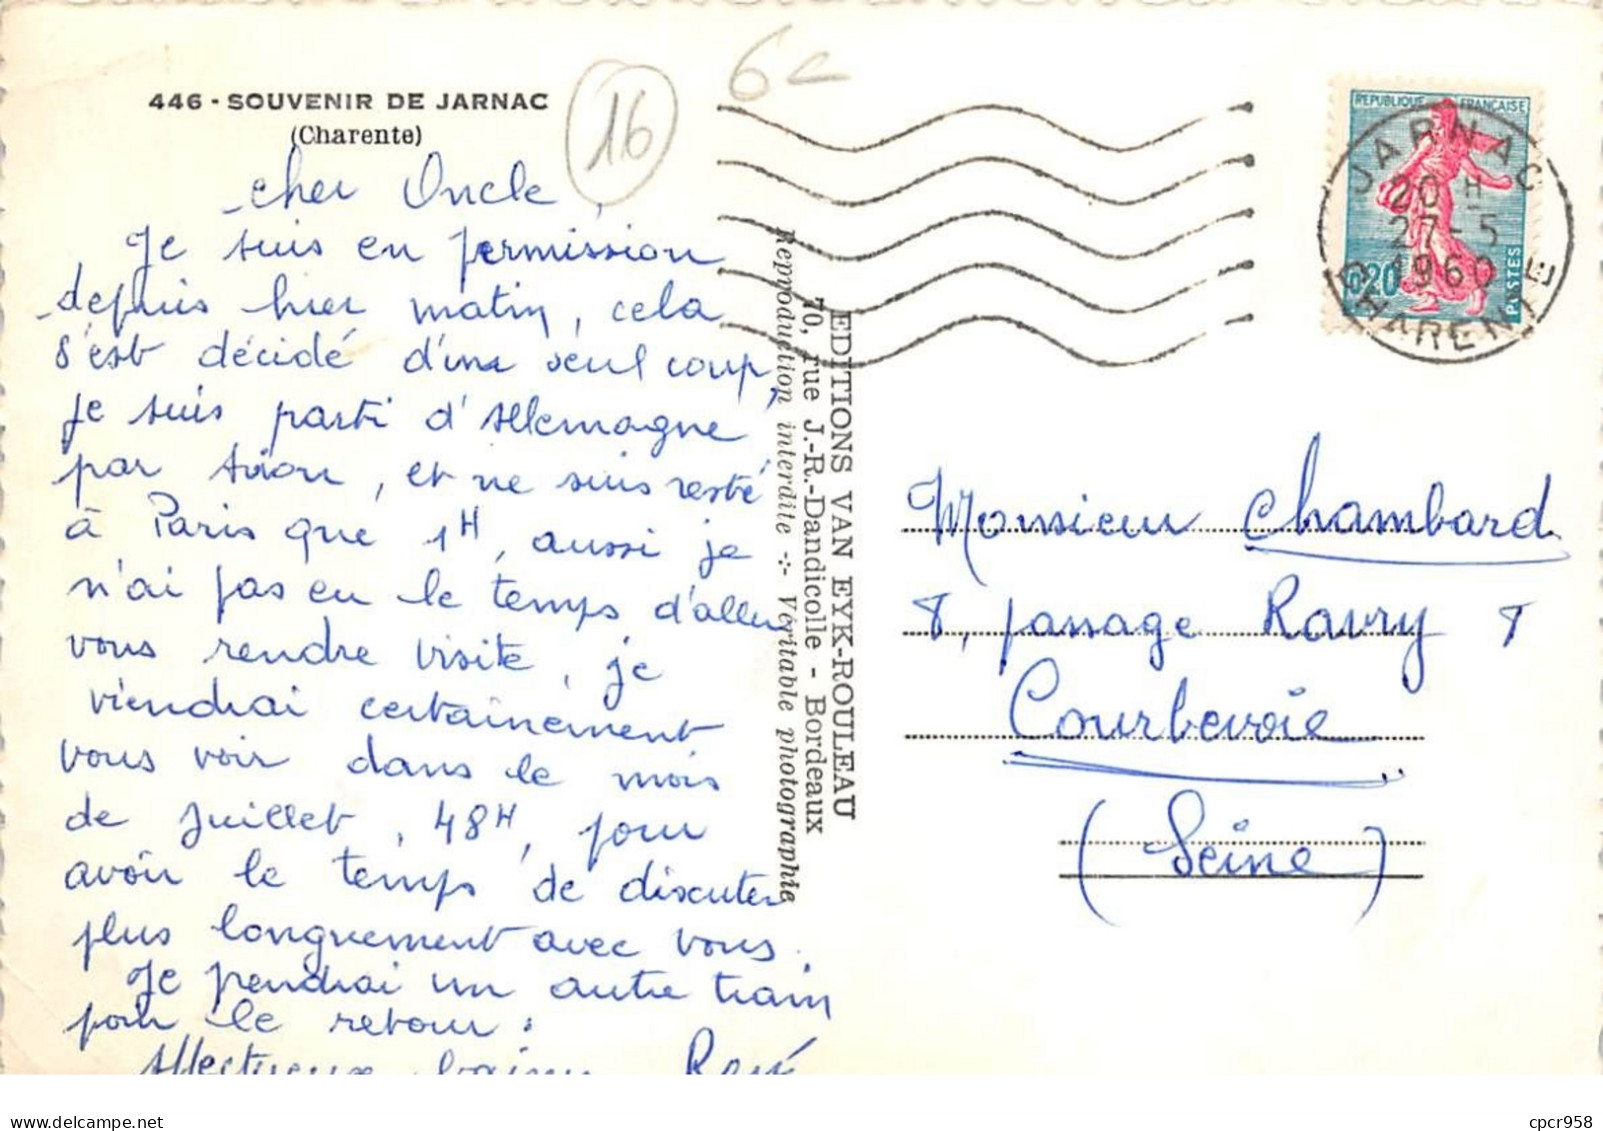 446 - SOUVENIR DE JARNAC
(Charente)
16
6
cher Oncle,
Je suis en permission
depuis hier matin, cela
s'est décidé d'un seul coup,
je suis parti d'Allemagne
par avion, et ne suis resté
à Paris que 1H, aussi je
n'ai pas eu le temps d'aller
vous rendre visite, je
viendrai certainement
vous voir dans le mois
de Juillet, 48H, pour
avoir le temps de discuter
plus longuement avec vous.
Je pendrai un autre train
pour le retour.
Affectueux baisers René
EDITIONS VAN EYK-ROULEAU
70, rue J.-R.-Dandicolle - Bordeaux
Reproduction interdite ⁘ Véritable photographie
REPUBLIQUE FRANÇAISE
0,20
POSTES
JARNAC
20 H
27-5
1960
CHARENTE
Monsieur Chambard
8, passage Ravry 8
Courbevoie
(Seine)
cpcr958